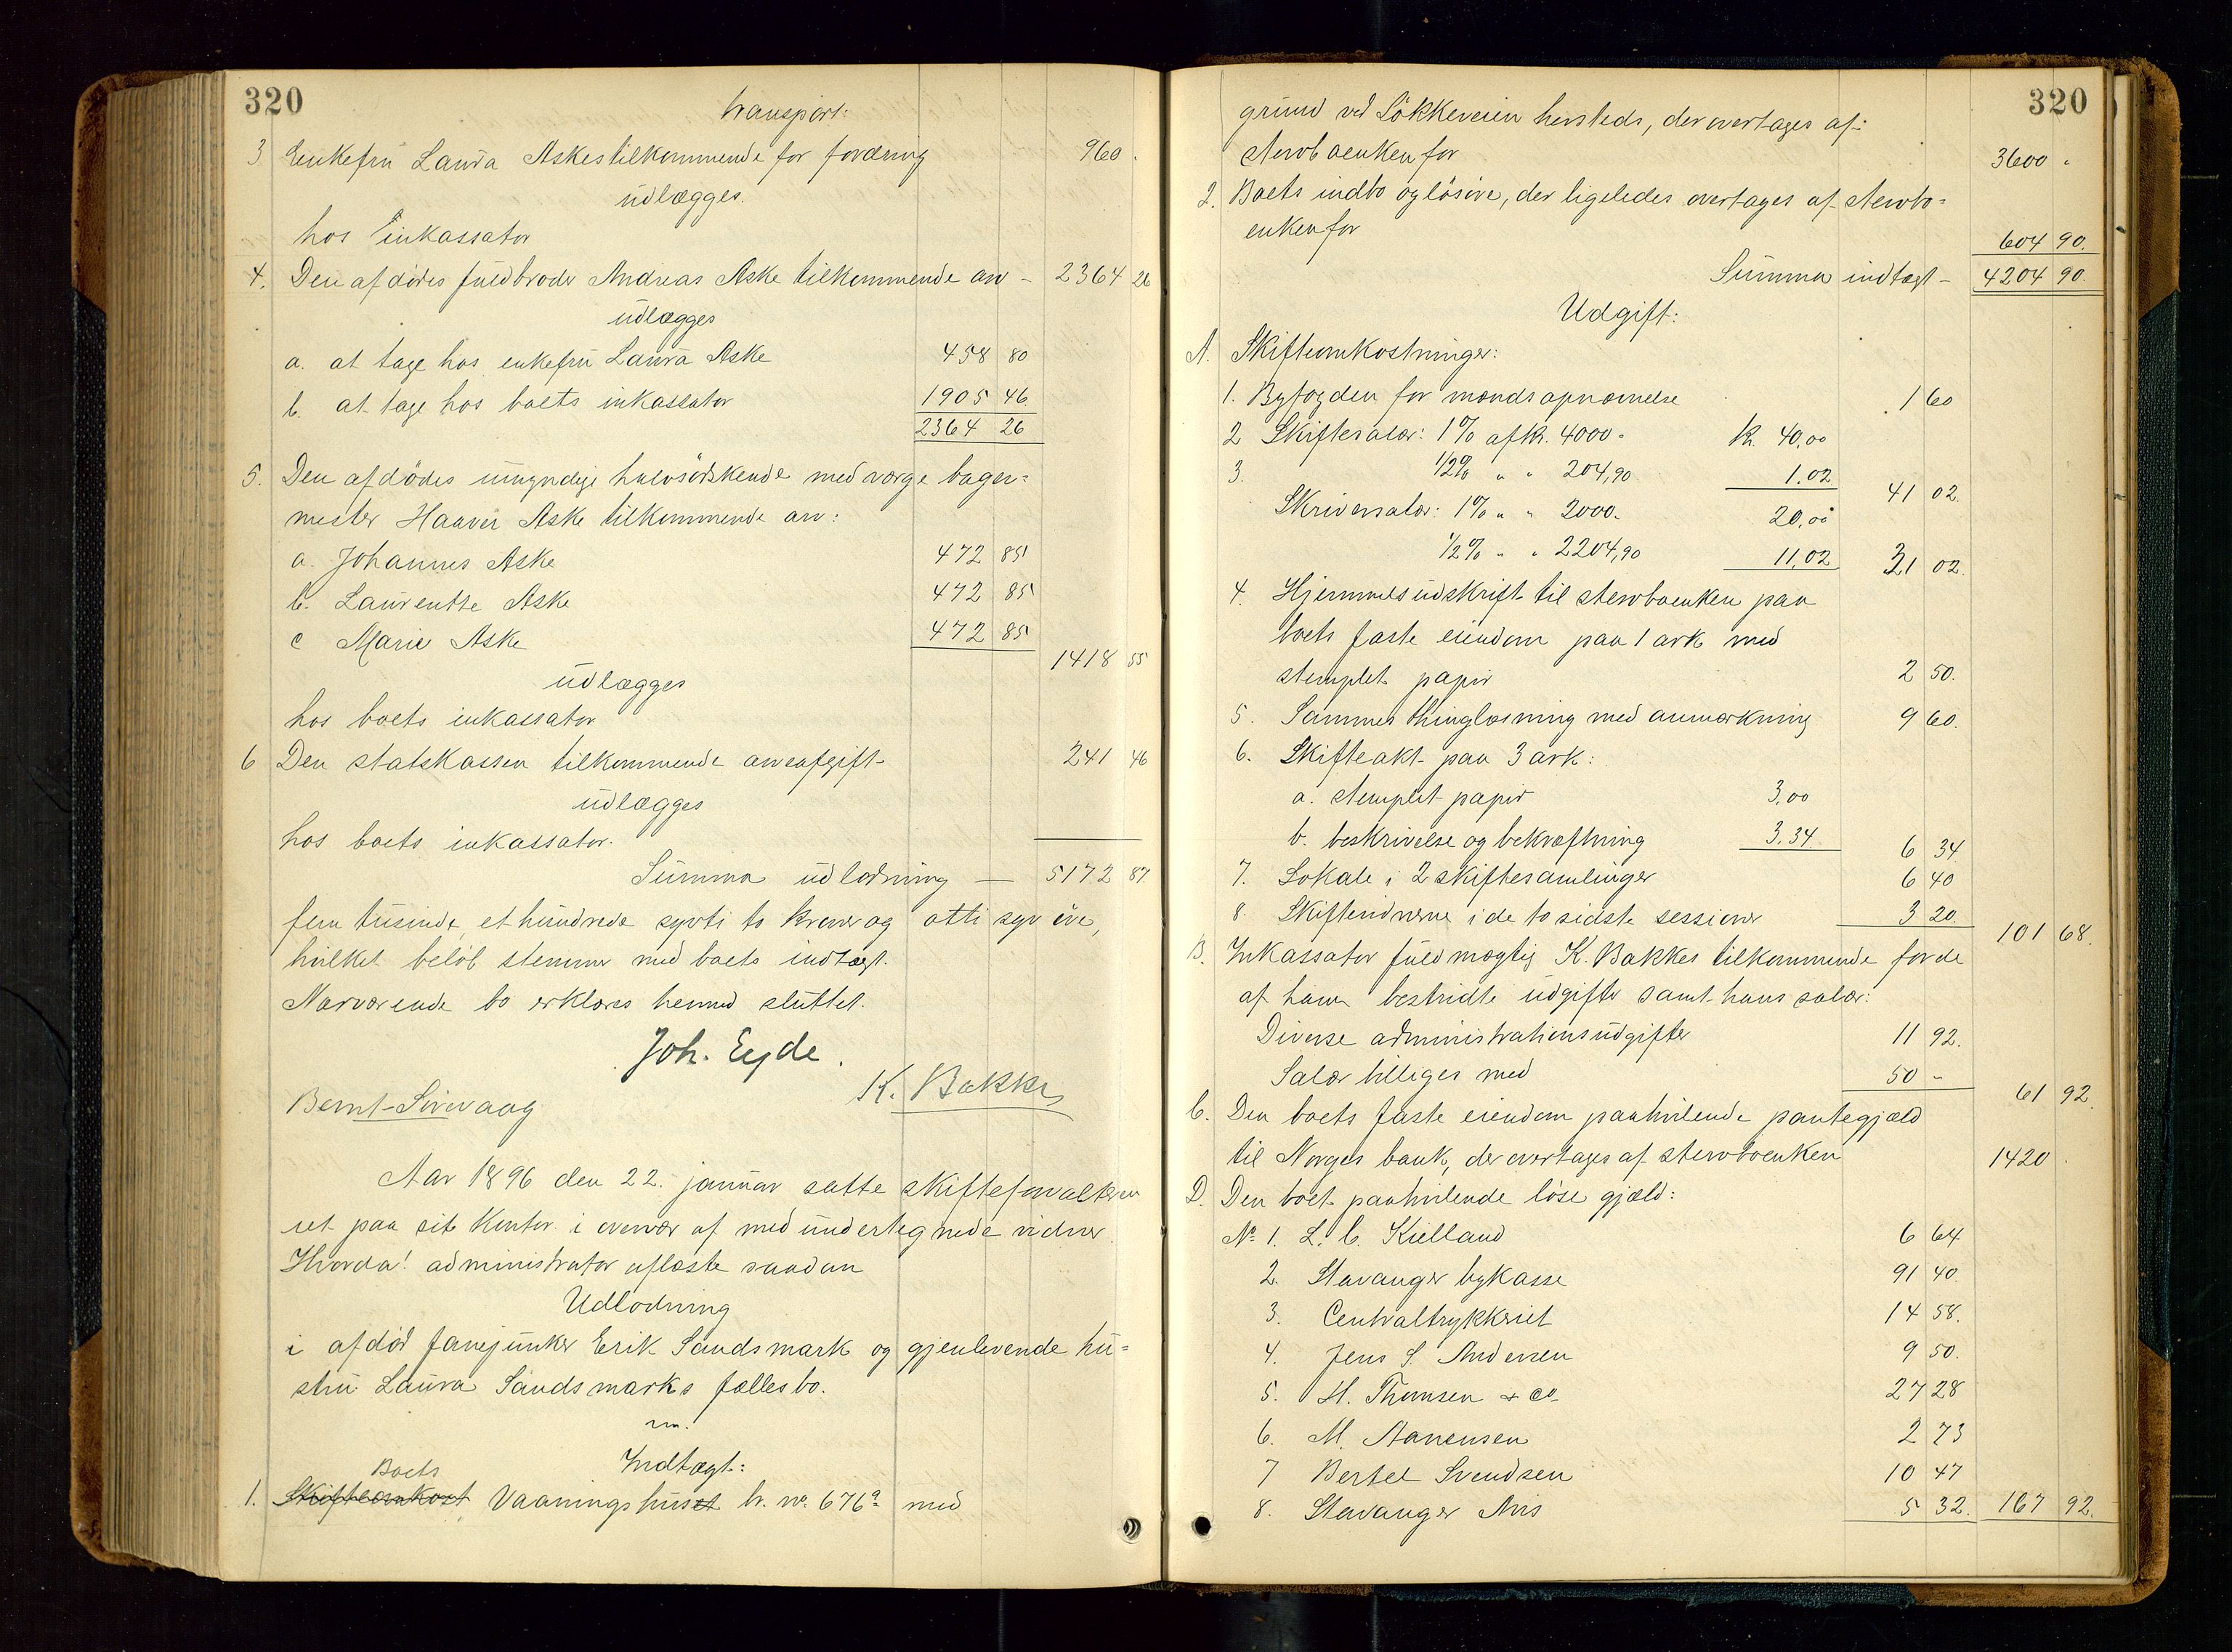 320
transport:
3 Enkefru Laura Askes tilkommende for fordring 960.
udlægges.
hos inkassator
4. Den afdödes fuldbroder Andreas Aske tilkommende arv - 2364 26
udlægges
a. at tage hos enkefru Laura Aske 458 80
b. at tage hos boets inkassator 1905 46
2364 26
5. Den afdödes umyndige halvsödskende med værge bager=
mester Haaver Aske tilkommende arv:
a. Johannes Aske 472 85
b. Laurentse Aske 472 85
c Marie Aske 472 85
1418 55
udlægges
hos boets inkassator
6 Den statskassen tilkommende arveafgift 241 46
udlægges
hos boets inkassator.
Summa udlodning — 5172 87
fem tusinde, et hundrede sytti to kroner og otti syv öre,
hvilket belöb stemmer med boets indtægt.
Nærværende bo erklæres hermed sluttet.
Joh. Eyde.
K. Bakke
Bernt Sirevaag
Aar 1896 den 22. januar satte skifteforvalteren
ret paa sit kontor i overvær af medundertegnede vidner.
Hvorda! administrator oplæste saadan
Udlodning
i afdöd fanejunker Erik Sandsmark og gjenlevende hu=
stru Laura Sandsmarks fællesbo.
Indtægt:
Boets
1. Skifteomkost Vaaningshuset br. no. 676a med
320
grund ved Lökkeveien hersteds, der overtages af
stervboenken for 3600 .
2. Boets indbo og lösöre, der ligeledes overtages af stervbo=
enken for 604 90.
Summa indtægt - 4204 90.
Udgift:
A. Skifteomkostninger:
1. Byfogden for mændsopnævnelse 1 60
2 Skiftesalær: 1% af kr. 4000. kr. 40,00
3. 1/2% " " 204,90 1.02 41 02.
Skriversalær: 1% " " 2000. 20,00
1/2% " " 2204,90 11,02 31 02.
4. Hjemmelsudskrift til stervboenken paa
boets faste eiendom paa 1 ark med
stemplet papir 2 50.
5. Sammes thinglæsning med anmærkning 9 60.
6. Skifteakt paa 3 ark:
a. stemplet papir 3,00
b. beskrivelse og bekræftning 3.34 6 34
7. Lokale i 2 skiftesamlinger 6 40
8. Skiftevidnerne i de to sidste sessioner 3 20. 101 68.
B. Inkassator fuldmægtig K. Bakkes tilkommende for de
af ham bestridte udgifter samt hans salær:
Diverse administrationsudgifter 11 92.
Salær tilliges med 50 - 61 92.
C. Den boets faste eiendom paahvilende pantegjæld
til Norges bank, der overtages af stervboenken 1420 .
D. Den boet paahvilende löse gjæld:
No 1. L. C. Kielland 6 64
2. Stavanger bykasse 91 40.
3. Centraltrykkeriet 14 58.
4. Jens S. Andersen 9 50.
5. H. Thomsen & co 27 28
6. M. Aanensen 2 73
7 Bertel Svendsen 10 47
8. Stavanger Avis 5 32. 167 92.